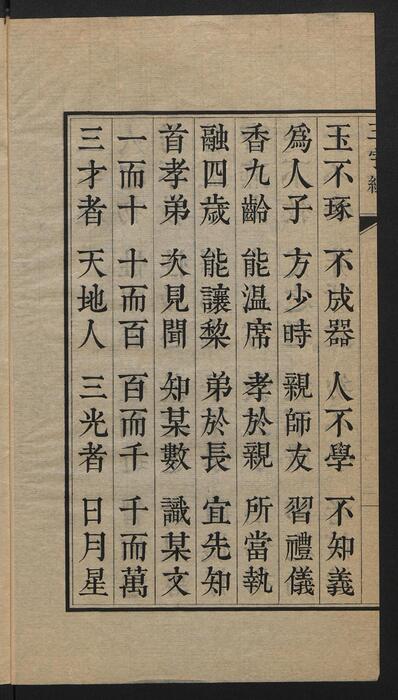 三字經
玉不琢 不成器 人不學 不知義
爲人子 方少時 親師友 習禮儀
香九齡 能温席 孝於親 所當執
融四歲 能讓棃 弟於長 宜先知
首孝弟 次見聞 知某數 識某文
一而十 十而百 百而千 千而萬
三才者 天地人 三光者 日月星